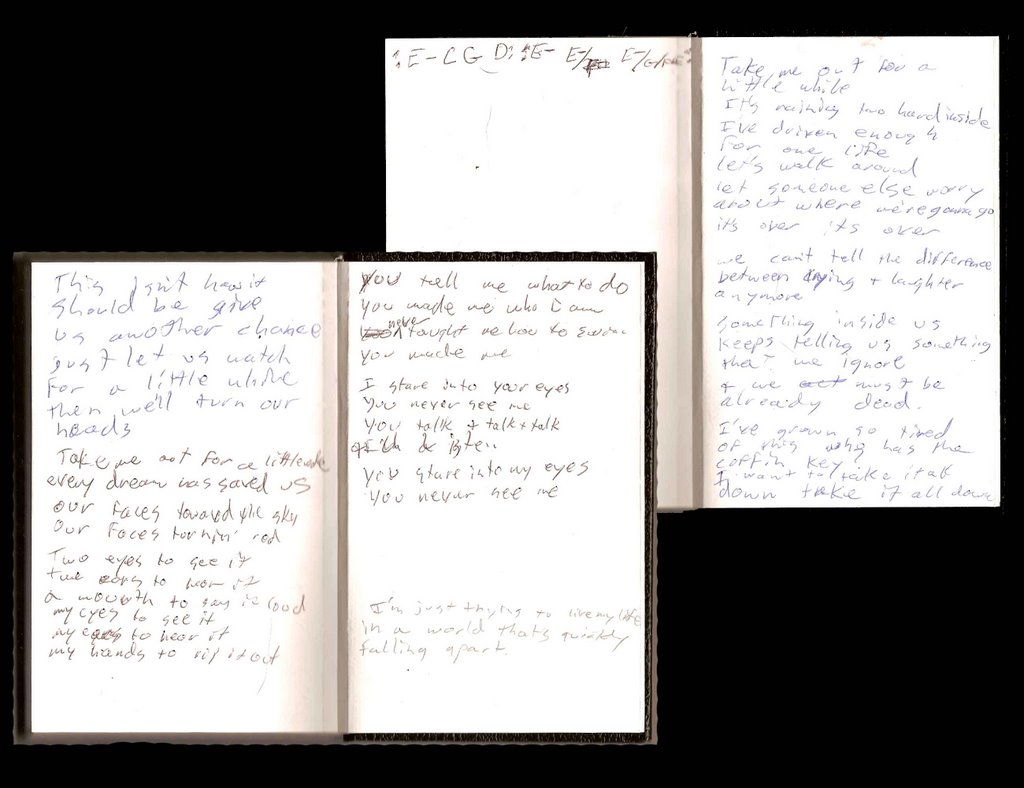 :E- C G D: :E- E-/ E-/G/
Take me out for a
little while
It's raining too hard inside
I've driven enough
for one life
let's walk around
let someone else worry
about where we're gonna go
it's over its over
we can't tell the difference
between crying + laughter
anymore
Something inside us
keeps telling us something
that we ignore
+ we must be
already dead.
I've grown so tired
of this who has the
coffin key
I want to take it all
down take it all down
This isn't how it
should be give
us another chance
just let us watch
for a little while
then we'll turn our
heads
Take me out for a little while
every dream was saved us
our faces toward the sky
our faces turnin' red
Two eyes to see it
two ears to hear it
a mouth to say it loud
my eyes to see it
my ears to hear it
my hands to rip it out
You tell me what to do
you made me who I am
never taught me how to
you made me
I stare into your eyes
you never see me
you talk + talk + talk
& listen
you stare into my eyes
you never see me
I'm just trying to live my life
in a world thats quickly
falling apart.